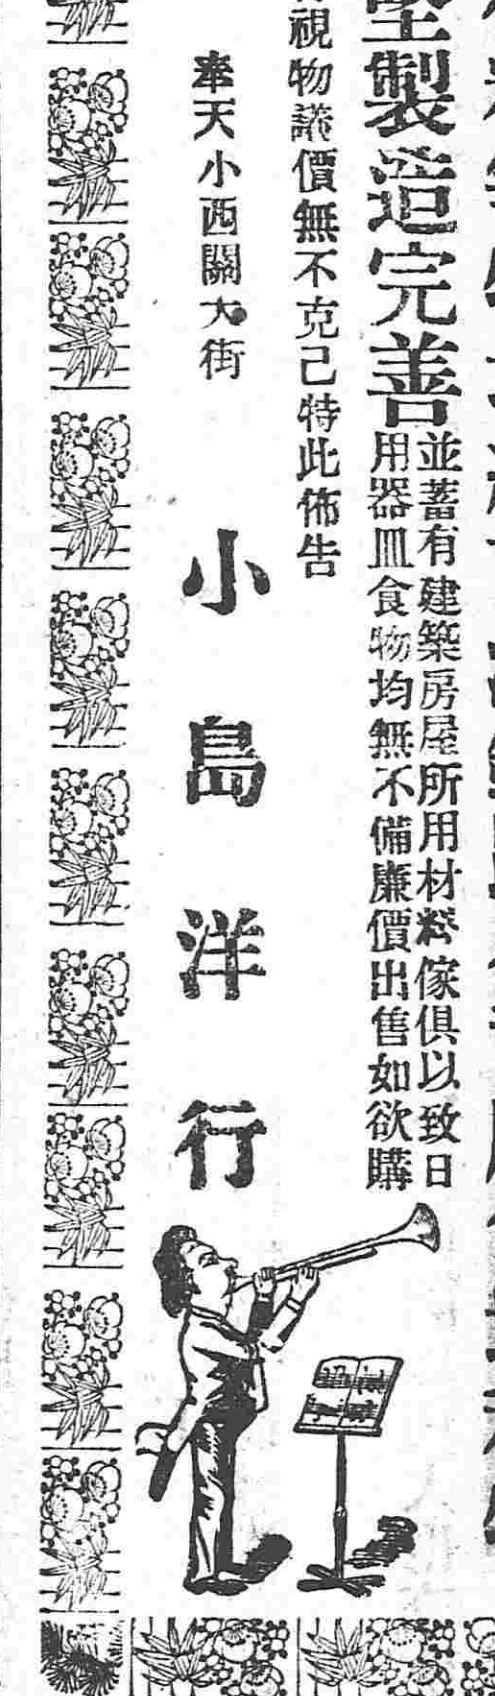 製造完善
並蓄有建築房屋所用材料傢俱以致日
用器皿食物均無不備廉價出售如欲購
視物議價無不克己特此佈告
奉天小西關大街
小島洋行